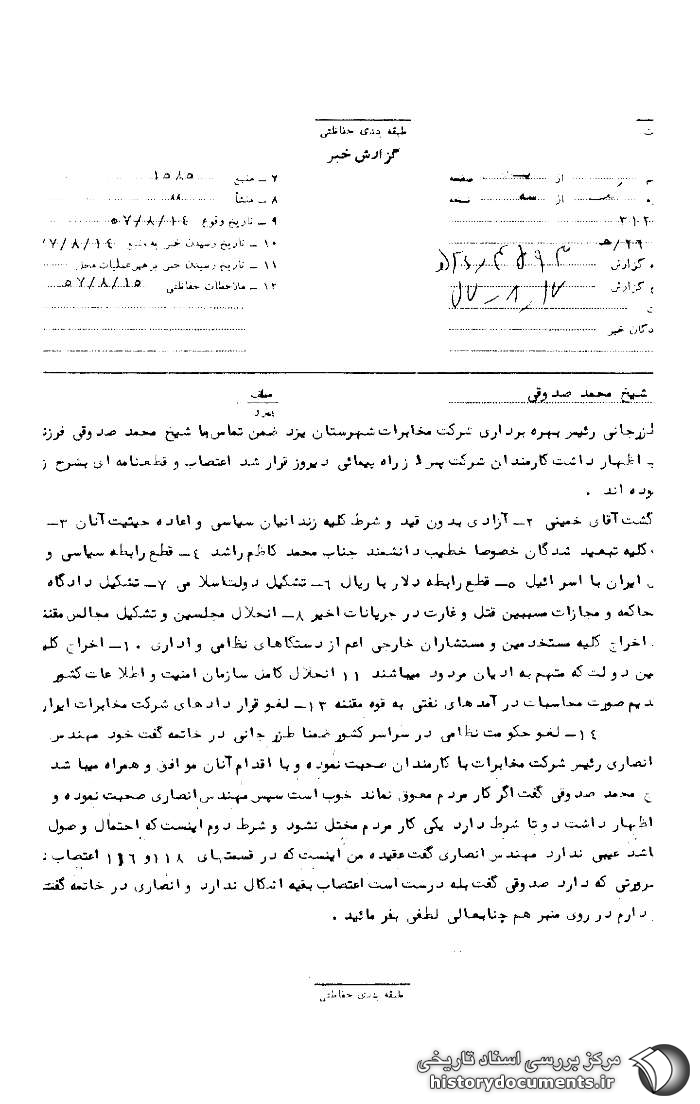 طبقه بندی حفاظتی
گزارش خبر
از صفحه
از سه نسخه
۳۱۲۰
۲۶/هـ
گزارش
گزارش ۵۷-۸-۱۷
دگان خبر
۷ ــ منبع ۱۵۸۵
۸ ــ منشأ ۸۸
۹ ــ تاریخ وقوع ۵۷/۸/۱۴
۱۰ ــ تاریخ رسیدن خبر به منبع ۷/۸/۱۴
۱۱ ــ تاریخ رسیدن خبر برهبر عملیات محل
۱۲ ــ ملاحظات حفاظتی ۵۷/۸/۱۵
شیخ محمد صدوقی
طزرجانی رئیس بهره برداری شرکت مخابرات شهرستان یزد ضمن تماس با شیخ محمد صدوقی فرزند
اظهار داشت کارمندان شرکت پس از راه پیمائی دیروز قرار شد اعتصاب و قطعنامه ای بشرح ز
وده اند .
گشت آقای خمینی ۲ــ آزادی بدون قید و شرط کلیه زندانیان سیاسی و اعاده حیثیت آنان ۳ــ
کلیه تبعید شدگان خصوصا خطیب دانشمند جناب محمد کاظم راشد ۴ــ قطع رابطه سیاسی و
ایران با اسرائیل ۵ــ قطع رابطه دلار با ریال ۶ــ تشکیل دولت اسلامی ۷ــ تشکیل دادگاه
حاکمه و مجازات مسببین قتل و غارت در جریانات اخیر ۸ــ انحلال مجلسین و تشکیل مجالس مقننه
اخراج کلیه مستخدمین و مستشاران خارجی اعم از دستکاهای نظامی و اداری ۱۰ــ اخراج کلیه
ین دولت که متهم به ادیان مردود میباشند ۱۱ انحلال کامل سازمان امنیت و اطلاعات کشور
دیم صورت محاسبات درآمدهای نفتی به قوه مقننه ۱۳ــ لغو قراردادهای شرکت مخابرات ایران
۱۴ــ لغو حکومت نظامی در سراسر کشور ضمنا طزرجانی در خاتمه گفت خود مهندس
انصاری رئیس شرکت مخابرات با کارمندان صحبت نموده و با اقدام آنان موافق و همراه میباشد
خ محمد صدوقی گفت اگر کار مردم معوق نماند خوب است سپس مهندس انصاری صحبت نموده و
اظهار داشت دوتا شرط دارد یکی کار مردم مختل نشود و شرط دوم اینست که احتمال وصول
اشد عیبی ندارد مهندس انصاری گفت عقیده من اینست که در قسمتهای ۱۱۸ و ۱۱۶ اعتصاب ن
رورتی که دارد صدوقی گفت بله درست است اعتصاب بقیه اشکال ندارد و انصاری در خاتمه گفت
دارم در روی منبر هم جنابعالی لطفی بفرمائید .
طبقه بندی حفاظتی
مرکز بررسی اسناد تاریخی
historydocuments.ir